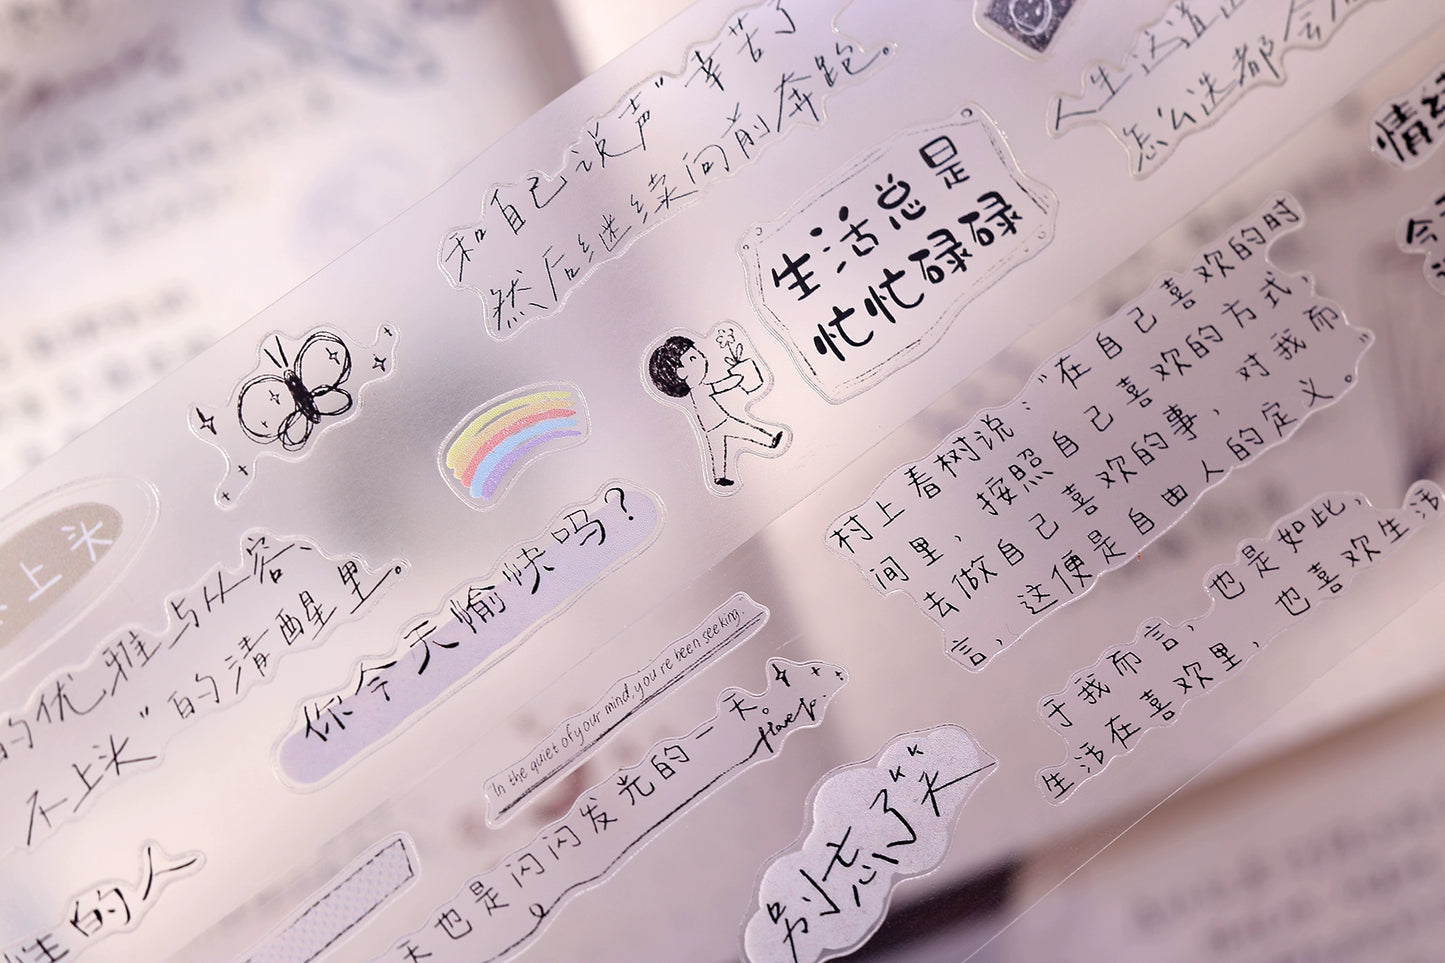 和自己说声"辛苦了
然后继续向前奔跑。
人生这道
怎么选都会
情绪
今
生活总是
忙忙碌碌
村上春树说："在自己喜欢的时
间里，按照自己喜欢的方式，
去做自己喜欢的事，对我而
言，这便是自由人的定义。
于我而言，也是如此，
生活在喜欢里，也喜欢生活
上头
的优雅与从容、
不上头"的清醒里。
你今天愉快吗？
"In the quiet of your mind, you're been seeking.
天也是闪闪发光的一天。
别忘了笑
性的人